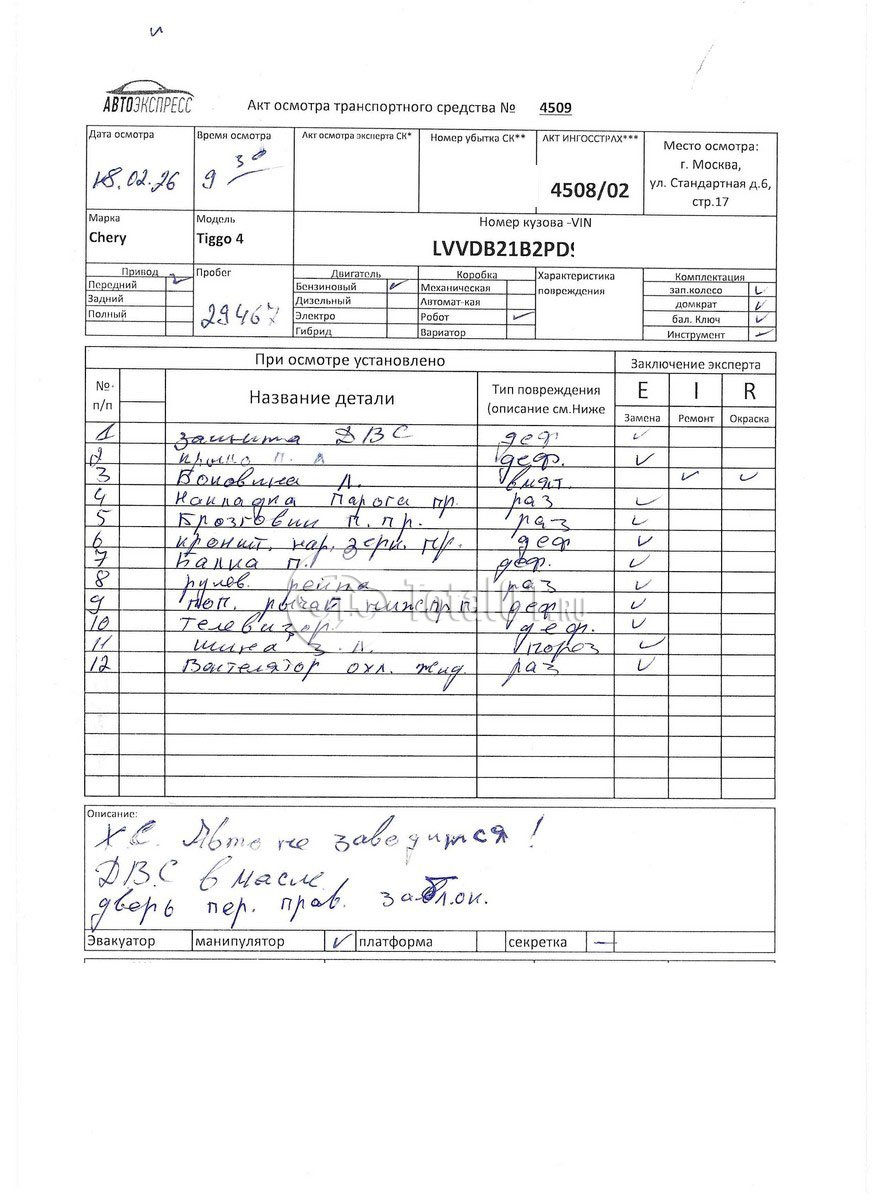 АВТОЭКСПРЕСС
Акт осмотра транспортного средства № 4509
Дата осмотра Время осмотра Акт осмотра эксперта СК* Номер убытка СК** АКТ ИНГОССТРАХ*** Место осмотра:
г. Москва,
18.02.26 9 30 4508/02 ул. Стандартная д.6,
стр.17
Марка Модель Номер кузова -VIN
Chery Tiggo 4 LVVDB21B2PD
Привод Пробег Двигатель Коробка Характеристика Комплектация
Передний Бензиновый Механическая повреждения зап.колесо
Задний 29467 Дизельный Автомат-кая домкрат
Полный Электро Робот бал. Ключ
Гибрид Вариатор Инструмент
При осмотре установлено Заключение эксперта
№ п/п Название детали Тип повреждения (описание см.Ниже E I R
Замена Ремонт Окраска
1 защита ДВС деф
2 деф.
3 Боковина Л. вмят.
4 Накладка Парога пр. раз
5 Брозговик п. пр. раз
6 кроншт. нар. зерк. пр. деф
7 Балка п. деф.
8 рулев. рейка раз
9 поп. рычаг ниж пр п деф
10 Телевизор деф.
11 шина з. л. пороз
12 охл. жид. раз
Total01.RU
Описание:
Х.С. Авто не заводится!
ДВС в масле
дверь пер. прав. заблок.
Эвакуатор манипулятор платформа секретка —